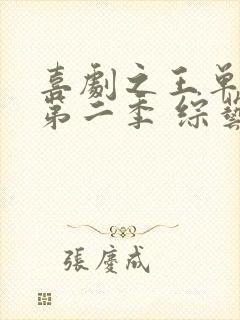 喜劇之王單
第二季 综藝
張慶成